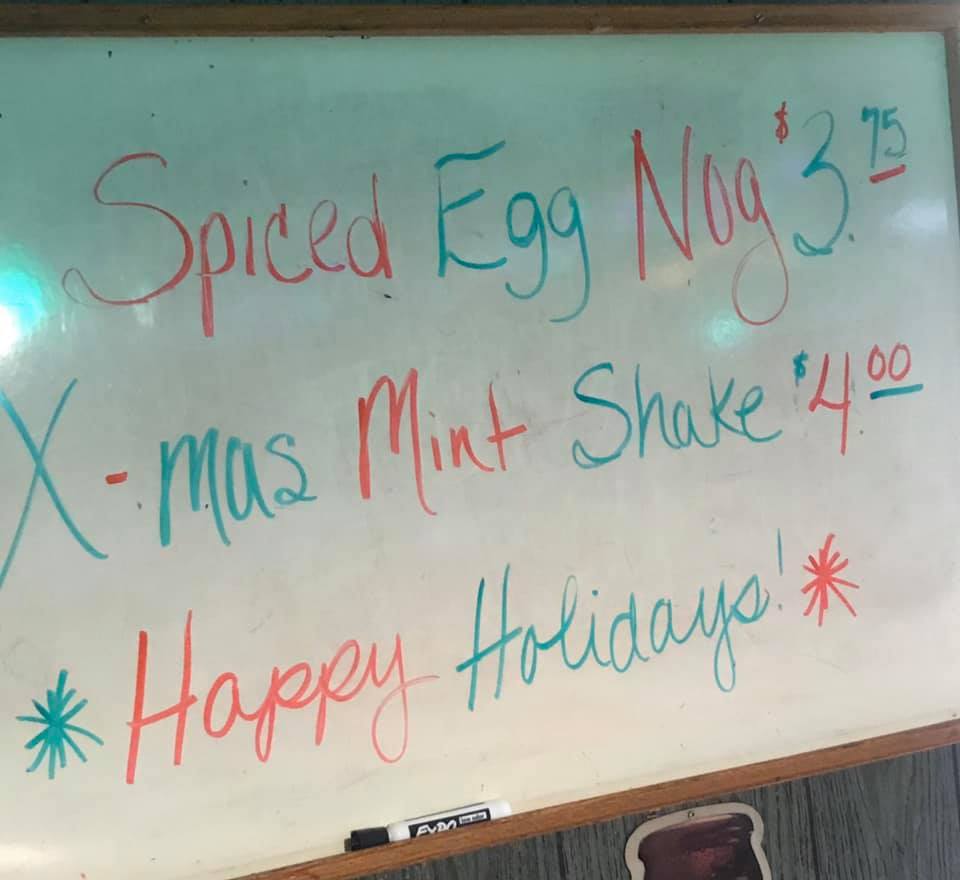 Spiced Egg Nog $3.75
X-mas Mint Shake $4.00
* Happy Holidays! *
EXPO